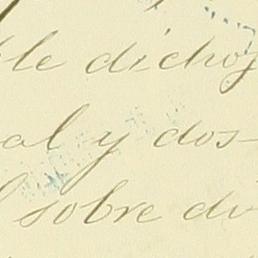 ble dichos
al y dos-
sobre di